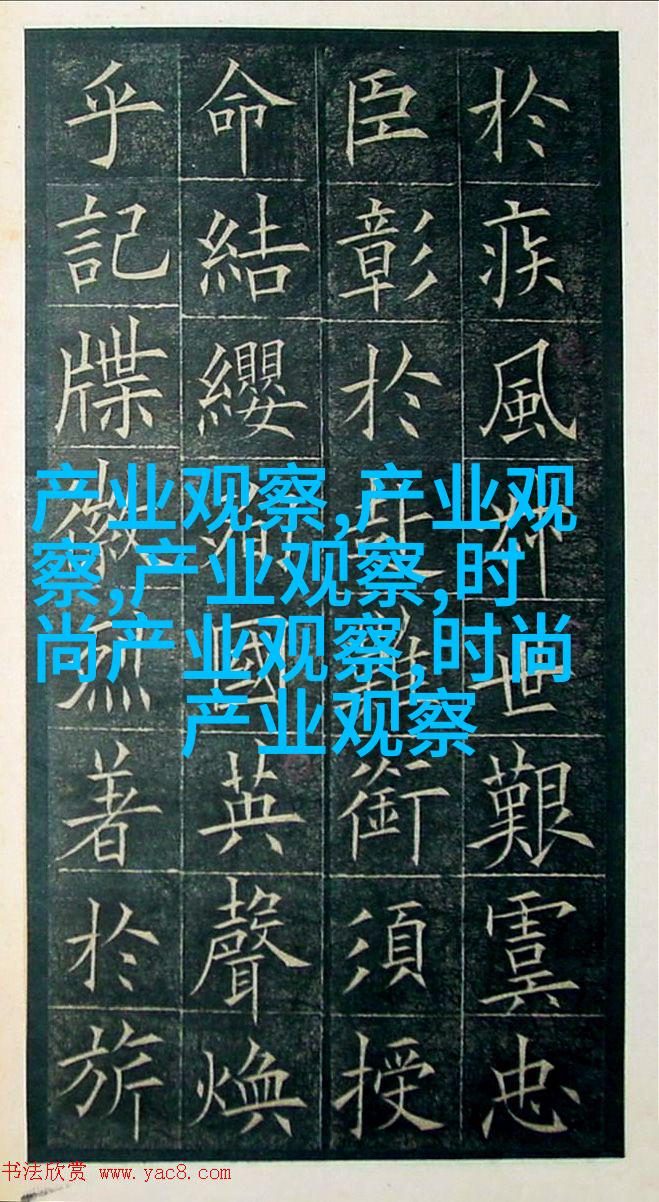 於疾風叔世艱虞忠
臣彰於赴難銜須授
命結纓殉國英聲煥
乎記牒徽烈著於旂
产业观察,产业观
察,产业观察,时
尚产业观察,时尚
产业观察
书法欣赏 www.yac8.com